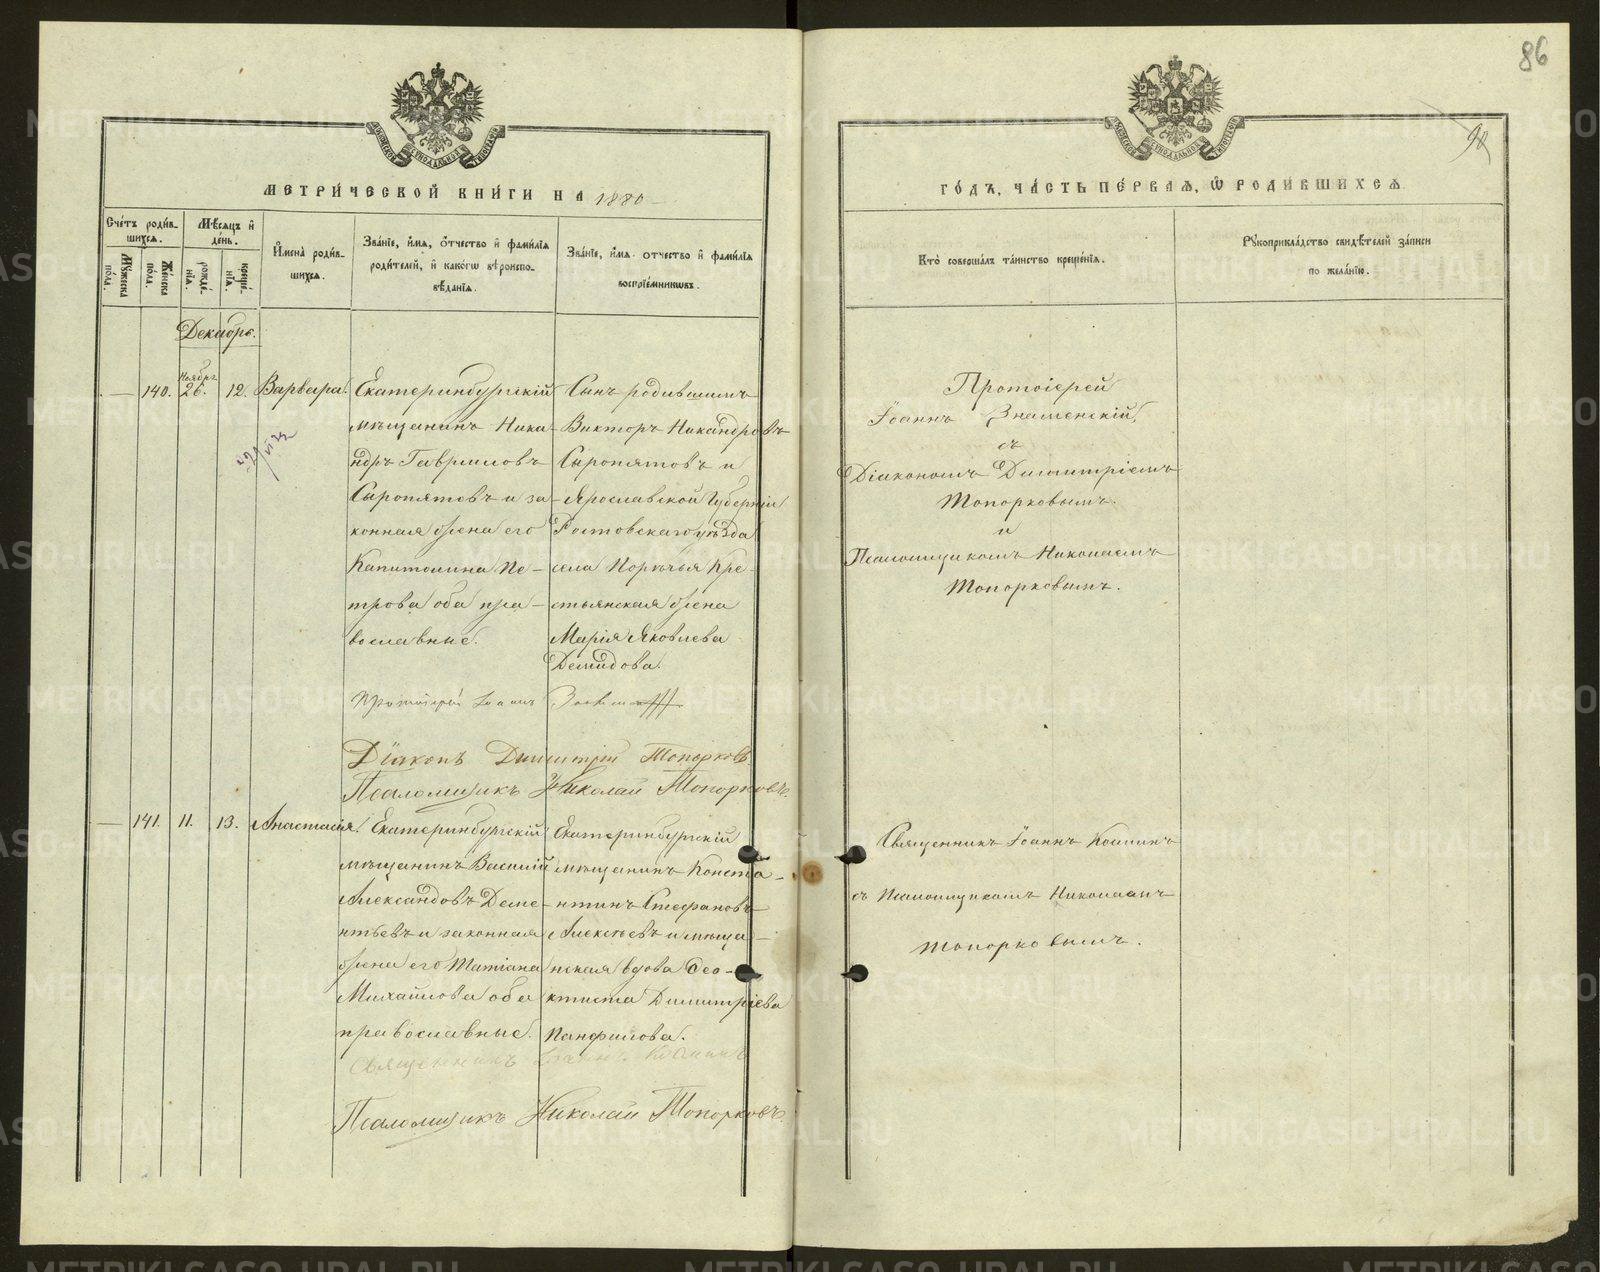 86
98
МЕТРИ́ЧЕСКОЙ КНИ́ГИ НА 1880
ГО́ДЪ, ЧА́СТЬ ПЕ́РВАЯ, Ѡ҆ РОДИ́ВШИХСЯ
Сче́тъ роди́в-
шихся.
Мѣ́сяцъ и҆
де́нь.
Му́жеска
по́ла.
Же́нска
по́ла.
рожде́-
нїя.
креще́-
нїя.
И҆мена̀ роди́в-
шихся.
Зва́нїе, и҆́мя, ѻ҆́тчество и҆ фами́лїя
роди́телей, и҆ како́гѡ вѣроиспо-
вѣ́данїя.
Зва́нїе, и҆́мя, ѻ҆́тчество и҆ фами́лїя
воспрїе́мникѡвъ.
Кто̀ соверша́лъ та́инство креще́нїя.
Рꙋкоприкла́дство свидѣ́телей за́писи
по жела́нїю.
Декабрь.
140. Ноября 26. 12. Варвара.
Екатеринбургскій
мѣщанинъ Ника-
ндръ Гавриловъ
Сыропятовъ и за-
конная жена его
Капитолина Пе-
трова оба пра-
вославные.
Сынъ родившимъ
Викторъ Никандровъ
Сыропятовъ и
Ярославской Губерніи
Ростовскаго уѣзда
села Порѣчья Кре-
стьянская жена
Марія Яковлева
Демидова.
Протоіерей
Іоаннъ Знаменскій,
съ
Діакономъ Димитріемъ
Топорковымъ.
и
Псаломщикомъ Николаемъ
Топорковымъ.
Протоіерей Іоаннъ
Діаконъ Димитрій Топорковъ.
Псаломщикъ Николай Топорковъ.
141. 11. 13. Анастасія.
Екатеринбургскій
мѣщанинъ Василій
Александовъ Деме-
нтьевъ и законная
жена его Татіана
Михайлова оба
православные.
Екатеринбургскій
мѣщанинъ Конста-
нтинъ Стефановъ
Алексѣевъ и мѣща-
нская вдова Ѳео-
ктиста Димитріева
Панфилова.
Священникъ Іоаннъ Кошинъ
съ Псаломщикомъ Николаемъ
Топорковымъ.
Священникъ Іоаннъ Кошинъ
Псаломщикъ Николай Топорковъ.
METRIKI.GASO-URAL.RU